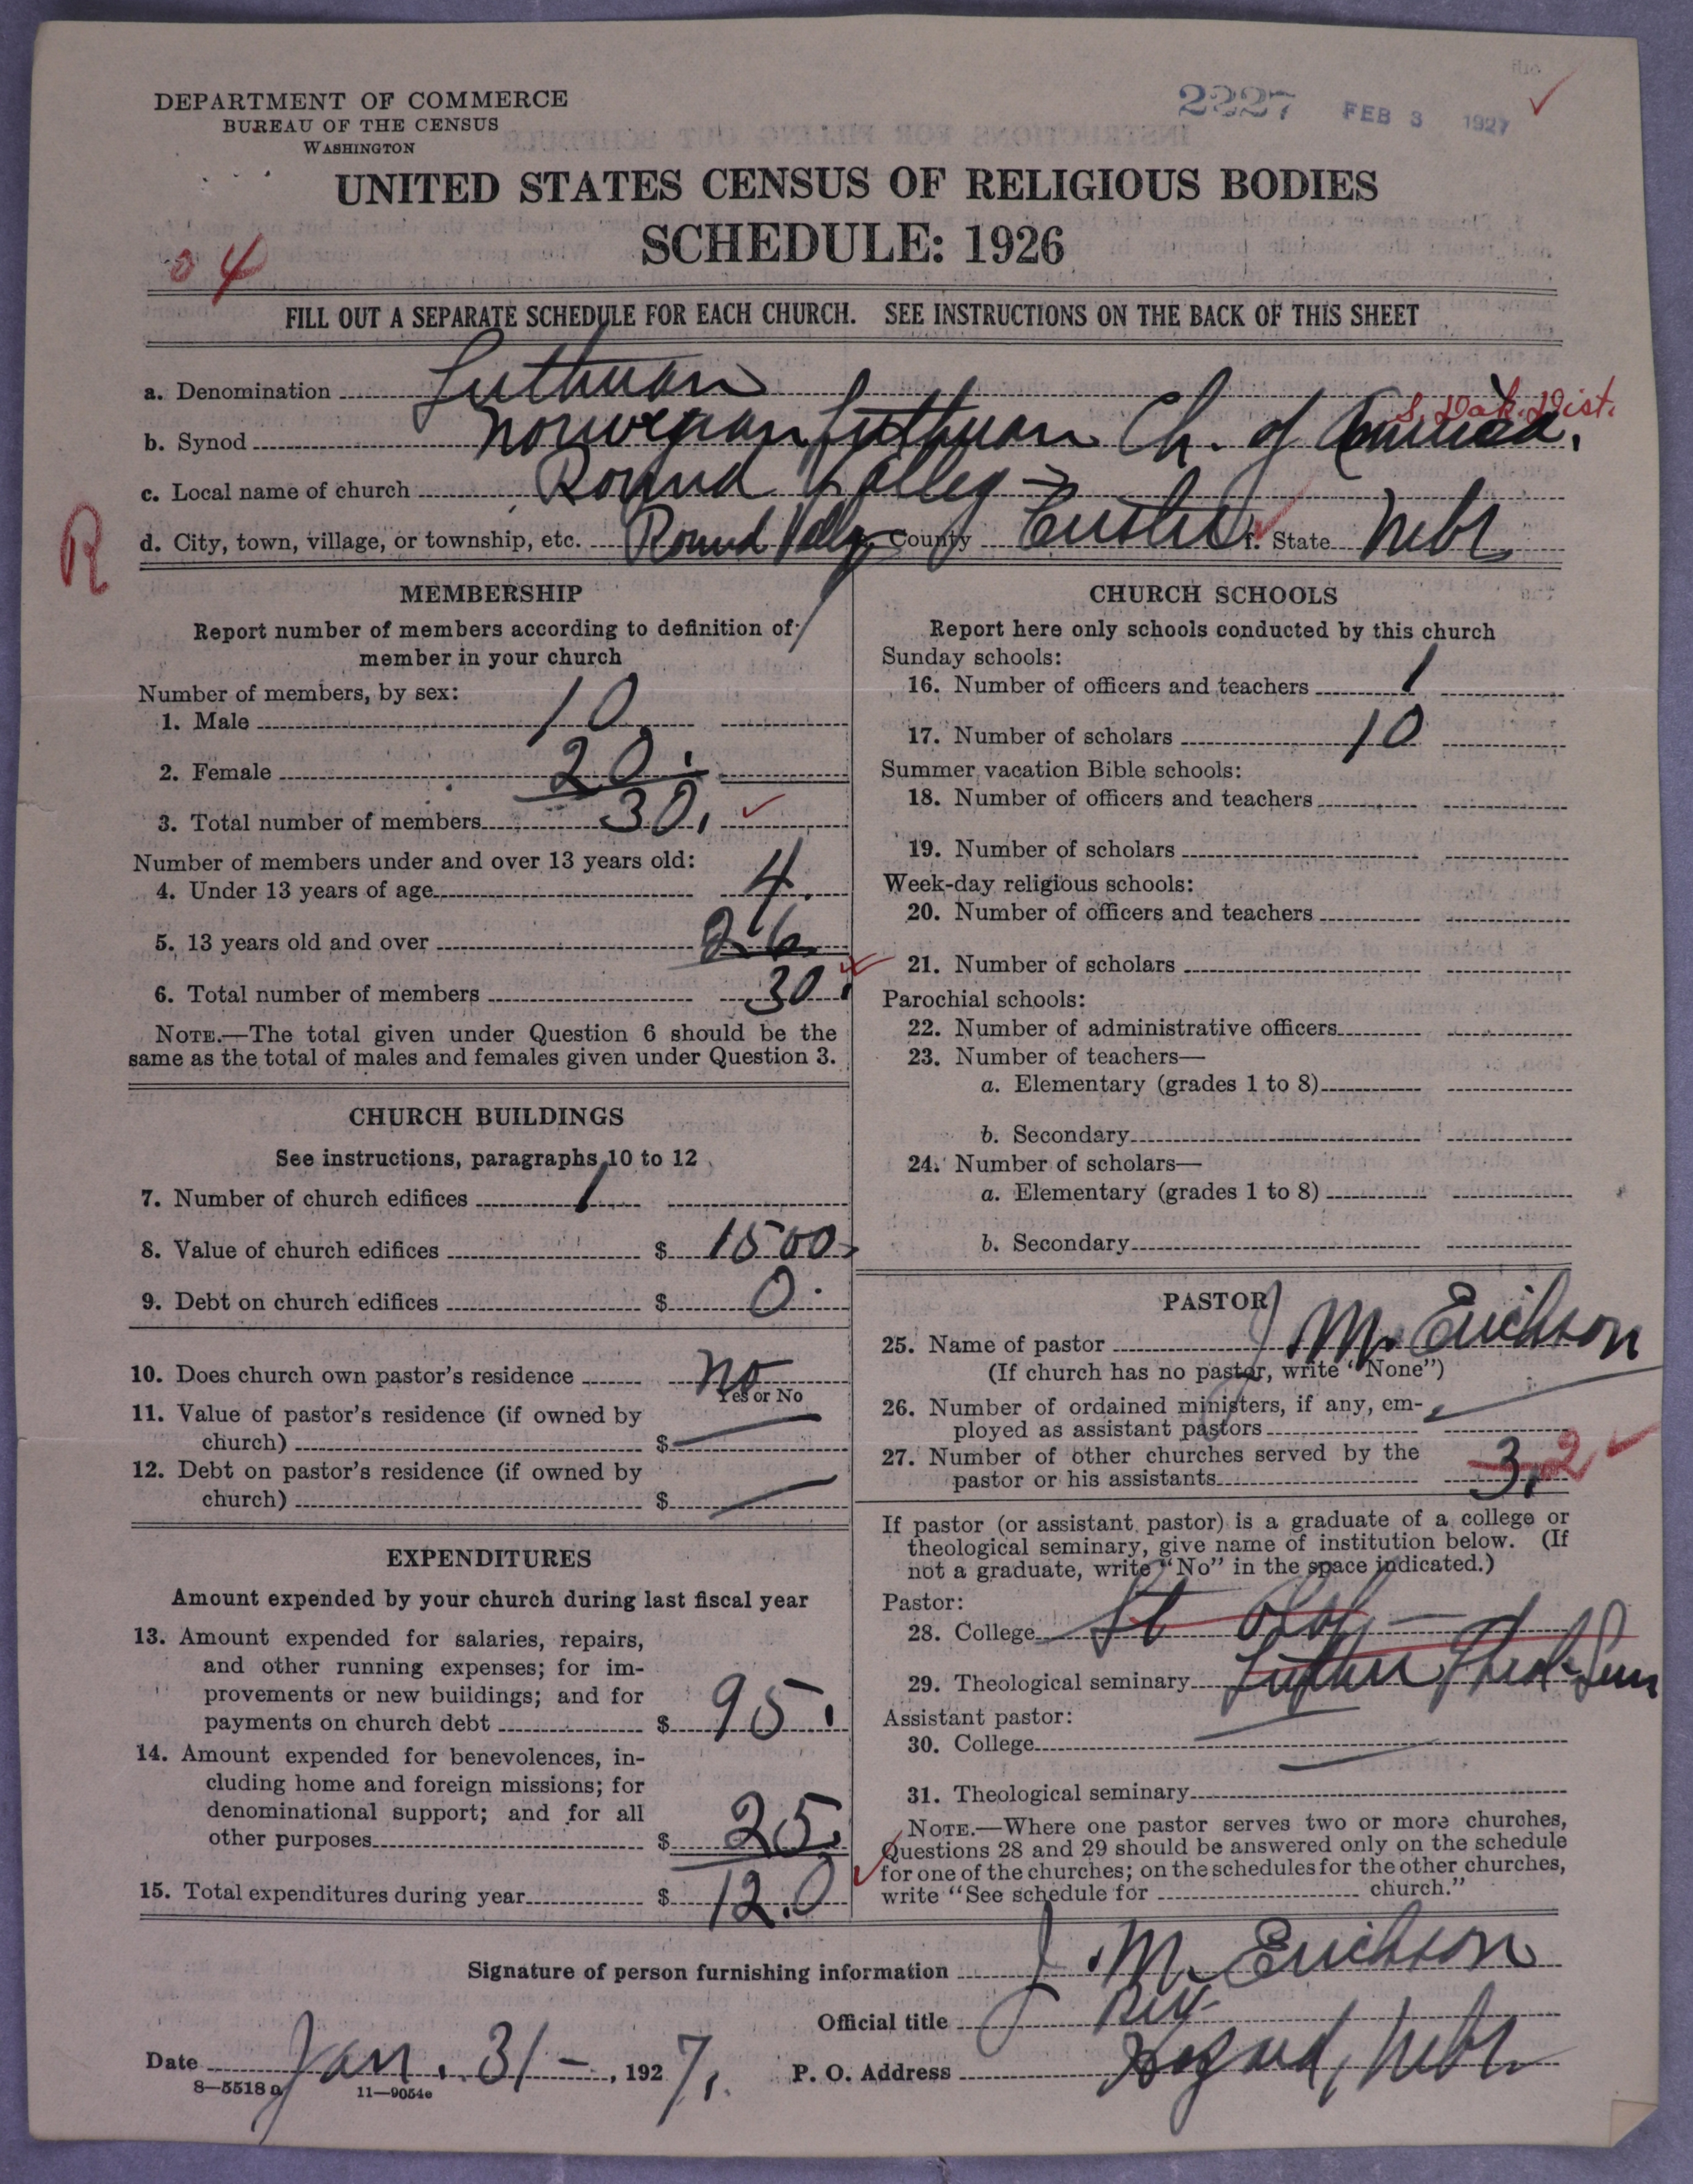 2227 FEB 3 1927 ✓
DEPARTMENT OF COMMERCE
BUREAU OF THE CENSUS
WASHINGTON
UNITED STATES CENSUS OF RELIGIOUS BODIES
SCHEDULE: 1926
04
FILL OUT A SEPARATE SCHEDULE FOR EACH CHURCH. SEE INSTRUCTIONS ON THE BACK OF THIS SHEET
a. Denomination Lutheran
S. Dak. Dist.
b. Synod Norwegian Lutheran Ch. of America.
c. Local name of church Round Valley
R
d. City, town, village, or township, etc. Round Valley County Custer f. State Nebr
MEMBERSHIP
Report number of members according to definition of
member in your church
Number of members, by sex:
1. Male 10
2. Female 20.
3. Total number of members 30. ✓
Number of members under and over 13 years old:
4. Under 13 years of age 4.
5. 13 years old and over 26
6. Total number of members 30. ✓
NOTE.—The total given under Question 6 should be the
same as the total of males and females given under Question 3.
CHURCH BUILDINGS
See instructions, paragraphs 10 to 12
7. Number of church edifices 1
8. Value of church edifices $ 1500
9. Debt on church edifices $ 0.
10. Does church own pastor's residence no
Yes or No
11. Value of pastor's residence (if owned by
church) $ —
12. Debt on pastor's residence (if owned by
church) $ —
EXPENDITURES
Amount expended by your church during last fiscal year
13. Amount expended for salaries, repairs,
and other running expenses; for im-
provements or new buildings; and for
payments on church debt $ 95.
14. Amount expended for benevolences, in-
cluding home and foreign missions; for
denominational support; and for all
other purposes $ 25.
15. Total expenditures during year $ 120 ✓
CHURCH SCHOOLS
Report here only schools conducted by this church
Sunday schools:
16. Number of officers and teachers 1
17. Number of scholars 10
Summer vacation Bible schools:
18. Number of officers and teachers
19. Number of scholars
Week-day religious schools:
20. Number of officers and teachers
21. Number of scholars
Parochial schools:
22. Number of administrative officers
23. Number of teachers—
a. Elementary (grades 1 to 8)
b. Secondary
24. Number of scholars—
a. Elementary (grades 1 to 8)
b. Secondary
PASTOR
25. Name of pastor J M. Erickson
(If church has no pastor, write "None")
26. Number of ordained ministers, if any, em-
ployed as assistant pastors —
27. Number of other churches served by the
pastor or his assistants 3. 2 ✓
If pastor (or assistant pastor) is a graduate of a college or
theological seminary, give name of institution below. (If
not a graduate, write "No" in the space indicated.)
Pastor:
28. College St Olaf —
29. Theological seminary Luther Theol. Sem
Assistant pastor:
30. College —
31. Theological seminary —
NOTE.—Where one pastor serves two or more churches,
Questions 28 and 29 should be answered only on the schedule
for one of the churches; on the schedules for the other churches,
write "See schedule for church."
Signature of person furnishing information J. M. Erickson
Official title Rev.
Date Jan. 31 —, 1927. P. O. Address Hazard, Nebr
8—5518 a 11—9054e